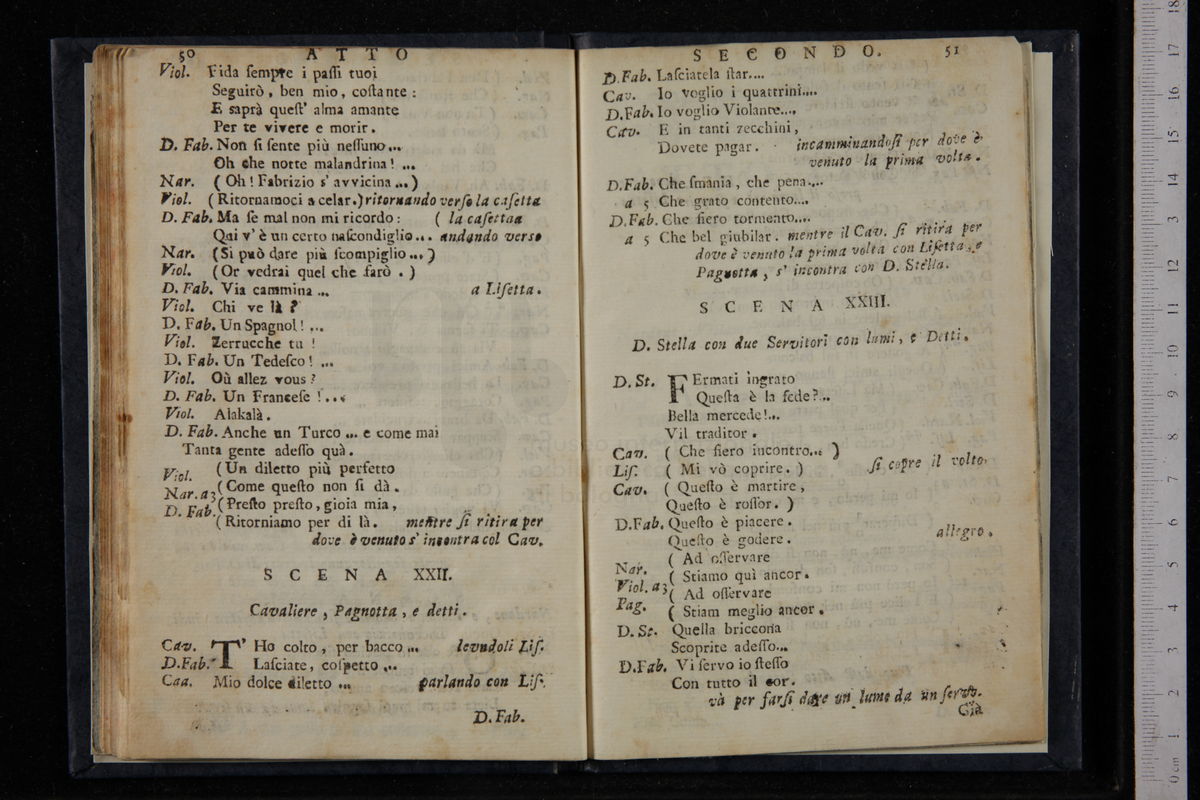 50 ATTO
Viol. Fida ſempre i paſſi tuoi
Seguirò, ben mio, coſtante:
E saprà queſt' alma amante
Per te vivere e morir.
D. Fab. Non ſi ſente più neſſuno...
Oh che notte malandrina! ...
Nar. (Oh! Fabrizio s' avvicina...)
Viol. (Ritornamoci a celar.) ritornando verſo la caſetta
D. Fab. Ma ſe mal non mi ricordo: ( la caſettaa
Qui v' è un certo naſcondiglio... andando verso
Nar. (Si può dare più ſcompiglio...)
Viol. (Or vedrai quel che farò.)
D. Fab. Via cammina... a Liſetta.
Viol. Chi ve là?
D. Fab. Un Spagnol! ...
Viol. Zerrucche tu!
D. Fab. Un Tedeſco! ...
Viol. Où allez vous?
D. Fab. Un Franceſe !...
Viol. Alakalà.
D. Fab. Anche un Turco... e come mai
Tanta gente adeſſo quà.
Viol. (Un diletto più perfetto
Nar. a3 (Come queſto non ſi dà.
D. Fab. (Preſto preſto, gioia mia,
(Ritorniamo per di là. mentre ſi ritira per
dove è venuto s' incontra col Cav.
SCENA XXII.
Cavaliere, Pagnotta, e detti.
Cav. T' Ho colto, per bacco... levndoli Liſ.
D.Fab. Laſciate, coſpetto...
Caa. Mio dolce diletto... parlando con Liſ.
D. Fab.
SECONDO. 51
D.Fab. Laſciatela ſtar....
Cav. Io voglio i quattrini....
D.Fab. Io voglio Violante....
Cav. E in tanti zecchini,
Dovete pagar. incamminandoſi per dove è
venuto la prima volta.
D.Fab. Che ſmania, che pena....
a 5 Che grato contento....
D.Fab. Che fiero tormento....
a 5 Che bel giubilar. mentre il Cav. ſi ritira per
dove è venuto la prima volta con Liſetta, e
Pagnotta, s' incontra con D. Stella.
SCENA XXIII.
D. Stella con due Servitori con lumi, e Detti.
D. St. FErmati ingrato
Queſta è la fede?...
Bella mercede!...
Vil traditor.
Cav. ( Che fiero incontro... )
Liſ. ( Mi vò coprire. ) ſi copre il volto.
Cav. ( Queſto è martire,
Queſto è roſſor. )
D.Fab. Queſto è piacere.
Queſto è godere. allegro.
( Ad oſſervare
Nar. ( Stiamo quì ancor.
Viol. a3 ( Ad oſſervare
Pag. ( Stiam meglio ancor.
D. St. Quella briccona
Scoprite adeſſo...
D.Fab. Vi ſervo io ſteſſo
Con tutto il cor.
và per farſi dare un lume da un ſervo.
Già